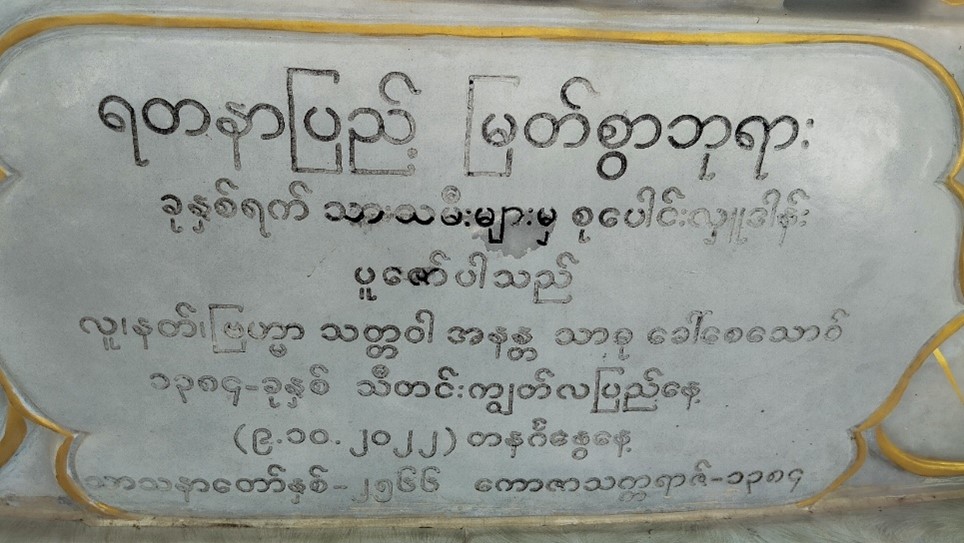 ရတနာပြည့် မြတ်စွာဘုရား
ခုနှစ်ရက် သားသမီးများမှ စုပေါင်းလှူဒါန်း
ပူဇော်ပါသည်
လူ၊နတ်၊ဗြဟ္မာ သတ္တဝါ အနန္တ သာဓု ခေါ်စေသောဝ်
၁၃၈၄-ခုနှစ် သီတင်းကျွတ်လပြည်နေ့
(၉.၁၀.၂၀၂၂) တနင်္ဂနွေနေ့
သာသနာတော်နှစ်-၂၅၆၆ ကောဇာသက္ကရာဇ်-၁၃၈၄